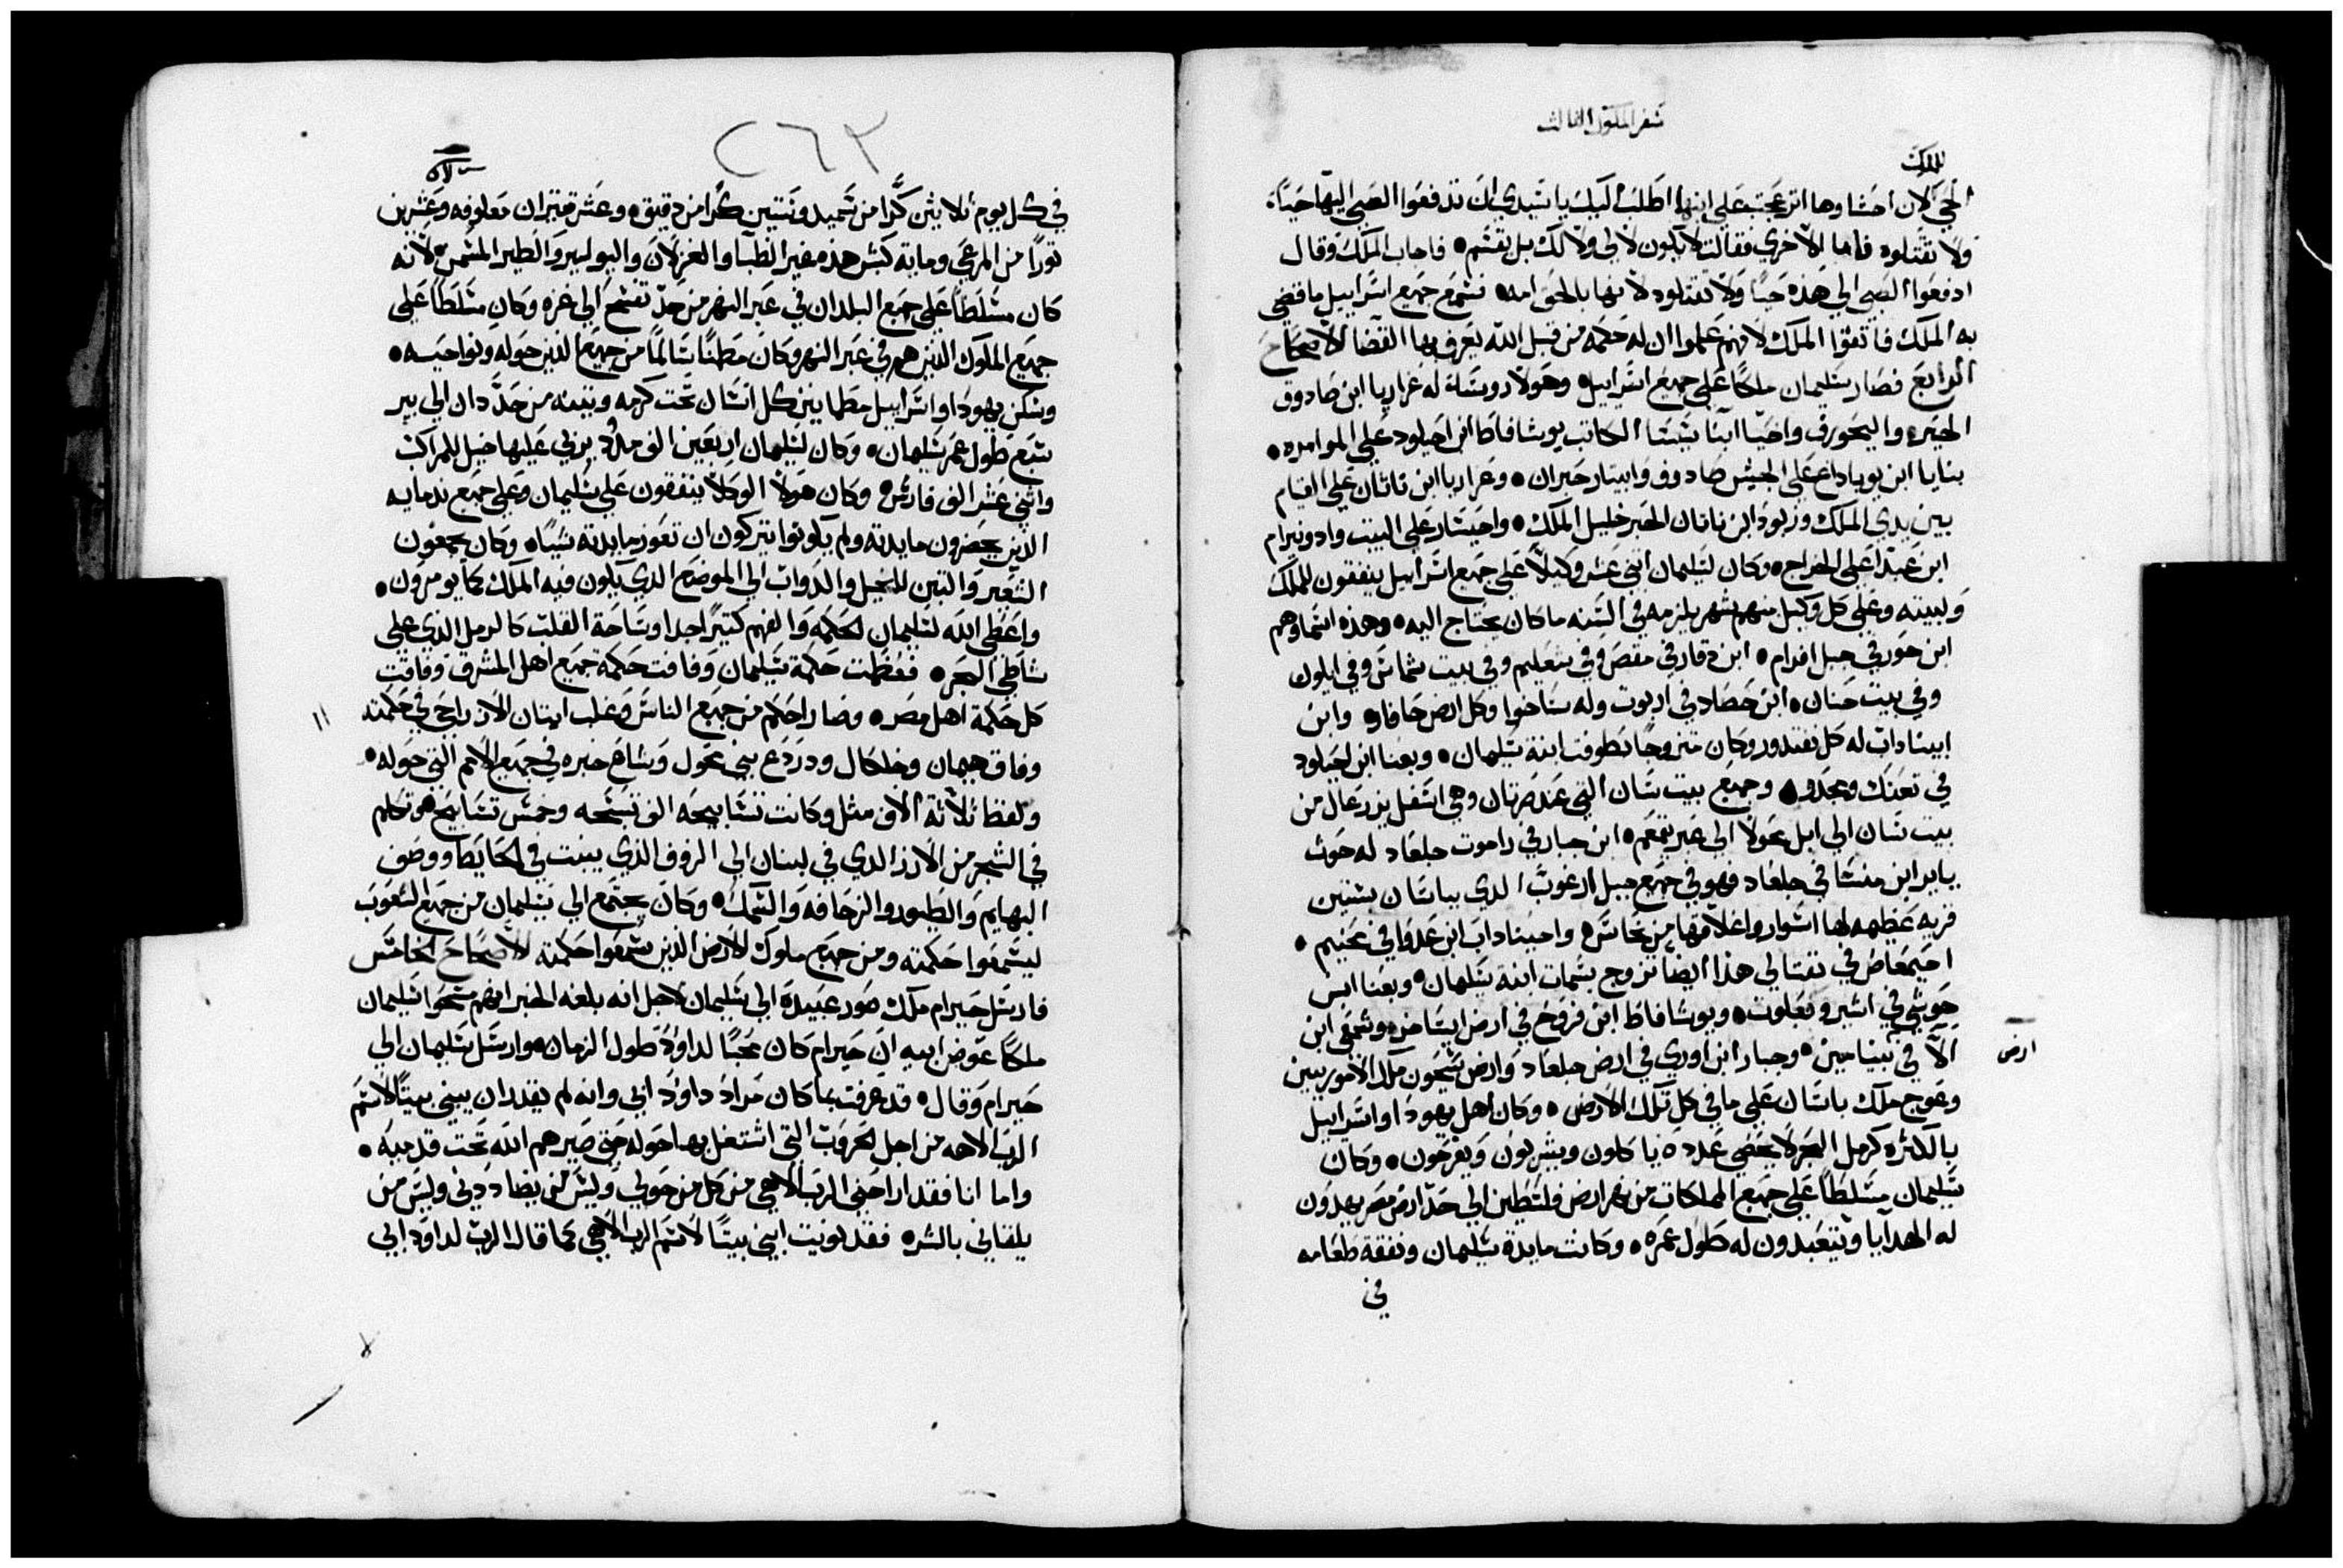 سفر الملوك الثالث
للملك
الحي لان احشاوها اترعجت علي ابنها اطلب اليك يا سيدي ان تدفعوا الصبي اليها حيًا
ولا تقتلوه فاما الاخري فقالت لا يكون لا لي ولا لك بل يقسم فاجاب الملك وقال
ادفعوا الصبي الي هذه حيًا ولا تقتلوه لانها بالحق امه فسمع جميع اسراييل ما قضي
به الملك فاتقوا الملك لانهم علموا ان له حكمه من قبل الله يعرف بها القضا الاصحاح
الرابع فصار سليمان ملكًا علي جميع اسراييل وهولا روساه له عزاريا ابن صادوق
الحبر واليحورف واخيا ابنا شيشا الكاتب يوشافاط ابن احيلود علي الموامره
بنايا ابن يوياداع علي الجيش صادوق وابيتار حبران وعزاريا ابن ناتان علي القيام
بين يدي الملك وزبود ابن ناتان الحبر خليل الملك واحيشار علي البيت وادونيرام
ابن عبدا علي الخراج وكان لسليمان اثني عشر وكيلاً علي جميع اسراييل ينفقون للملك
ولبيته وعلي كل وكيل منهم شهر يلزمه في السنه ما كان يحتاج اليه وهذه اسماوهم
ابن حور في جبل افرام ابن دقار في مقص وفي شعليم وفي بيت شماش وفي ايلون
وفي بيت حنان ابن حصاد في اربوت وله ساخوا وكل ارض حافار وابن
ابيناداب له كل نفتدور وكان متزوجًا بطوفت ابنة سليمان وبعنا ابن احيلود
في تعنك ومجدو وجميع بيت سان التي عند صرتان وهي اسفل يزرعال من
بيت سان الي ابل محولا الي عبر يقمعم ابن جبار في راموت جلعاد له حوث
ياير ابن منسا في جلعاد فهو في جميع جبل ارغوب الدي بباسان بستين
قريه عظيمه لها اسوار واغلاقها من نحاس واحيناداب ابن عدوا في محنيم
احيمعاص في نفتالي هذا ايضا تزوج بسمات ابنة سليمان وبعنا ابن
حوشي في اشير وبعلوت ويوشافاط ابن فروخ في ارض ايساخر وشمعي ابن
الا في بنيامين وجبار ابن اوري في ارض جلعاد وارض سيحون ملك الاموريين
ارض
وعوج ملك باسان علي ما في كل تلك الارض وكان اهل يهودا واسراييل
بالكثره كرمل البحر لا يحصي عدده ياكلون ويشربون ويفرحون وكان
سليمان مسلطًا علي جميع المملكات من نهر ارض فلسطين الي حد ارض مصر يهدون
له الهدايا ويتعبدون له طول عمره وكانت مايدة سليمان ونفقة طعامه
في
٢٦٣
في كل يوم ثلاثين كرًا من سميد وستين كرًا من دقيق وعشر ثيران معلوفه وعشرين
ثورًا من المرعي ومايه كبش هذه غير الظبا والغزلان واليوليير والطير المسمن لانه
كان مسلطًا علي جميع البلدان في عبر النهر من حد تفسح الي غزه وكان مسلطًا علي
جميع الملوك الذين هم في عبر النهر وكان مطمنًا سالمًا من جميع الذين حوله ونواحيه
وسكن يهودا واسراييل مطماينين كل انسان تحت كرمه وتينه من حد دان الي بير
سبع طول عمر سليمان وكان لسليمان اربعين الف مدود يربي عليها خيل للمراكب
واثني عشر الف فارس وكان هولا الوكلا ينفقون علي سليمان وعلي جميع ندمايه
الذين يحضرون مايدته ولم يكونوا يتركون ان تعوز مايدته شيًا وكان يجمعون
الشعير والتبن للخيل والدواب الي الموضع الدي يكون فيه الملك كما يومرون
واعطي الله لسليمان الحكمه والفهم كثيرًا جدا وساحة القلب كالرمل الذي علي
شاطي البحر فعظمت حكمة سليمان وفاقت حكمة جميع اهل المشرق وفاقت
كل حكمة اهل مصر وصار احكم من جميع الناس وغلب ايتان الازراحي في حكمته
وفاق هيمان وخلكال ودردع بني محول وشاع خبره في جميع الامم التي حوله
ولفظ ثلاثة الاف مثل وكانت تسابيحه الف تسبحه وخمس تسابيح هو تكلم
في الشجر من الارز الدي في لبنان الي الزوف الذي ينبت في الحايط ووصف
البهايم والطيور والزحافه والسمك وكان يجتمع الي سليمان من جميع الشعوب
ليسمعوا حكمته ومن جميع ملوك الارض الذين سمعوا حكمته الاصحاح الخامس
فارسل حيرام ملك صور عبيده الي سليمان لاجل انه بلغه الخبر انهم مسحوا سليمان
ملكًا عوض ابيه ان حيرام كان محبًا لداوود طول الزمان وارسل سليمان الي
حيرام وقال قد عرفت بما كان مراد داوود ابي وانه لم يقدر ان يبني بيتًا لاسم
الرب الاهه من اجل الحروب التي اشتغل بها حوله حتي صيرهم الله تحت قدميه
واما انا فقد اراحني الرب الاهي من كل من حولي وليس من يضاددني وليس من
يلقاني بالشر فقد نويت ابني بيتًا لاسم الرب الاهي كما قال الرب لداود ابي